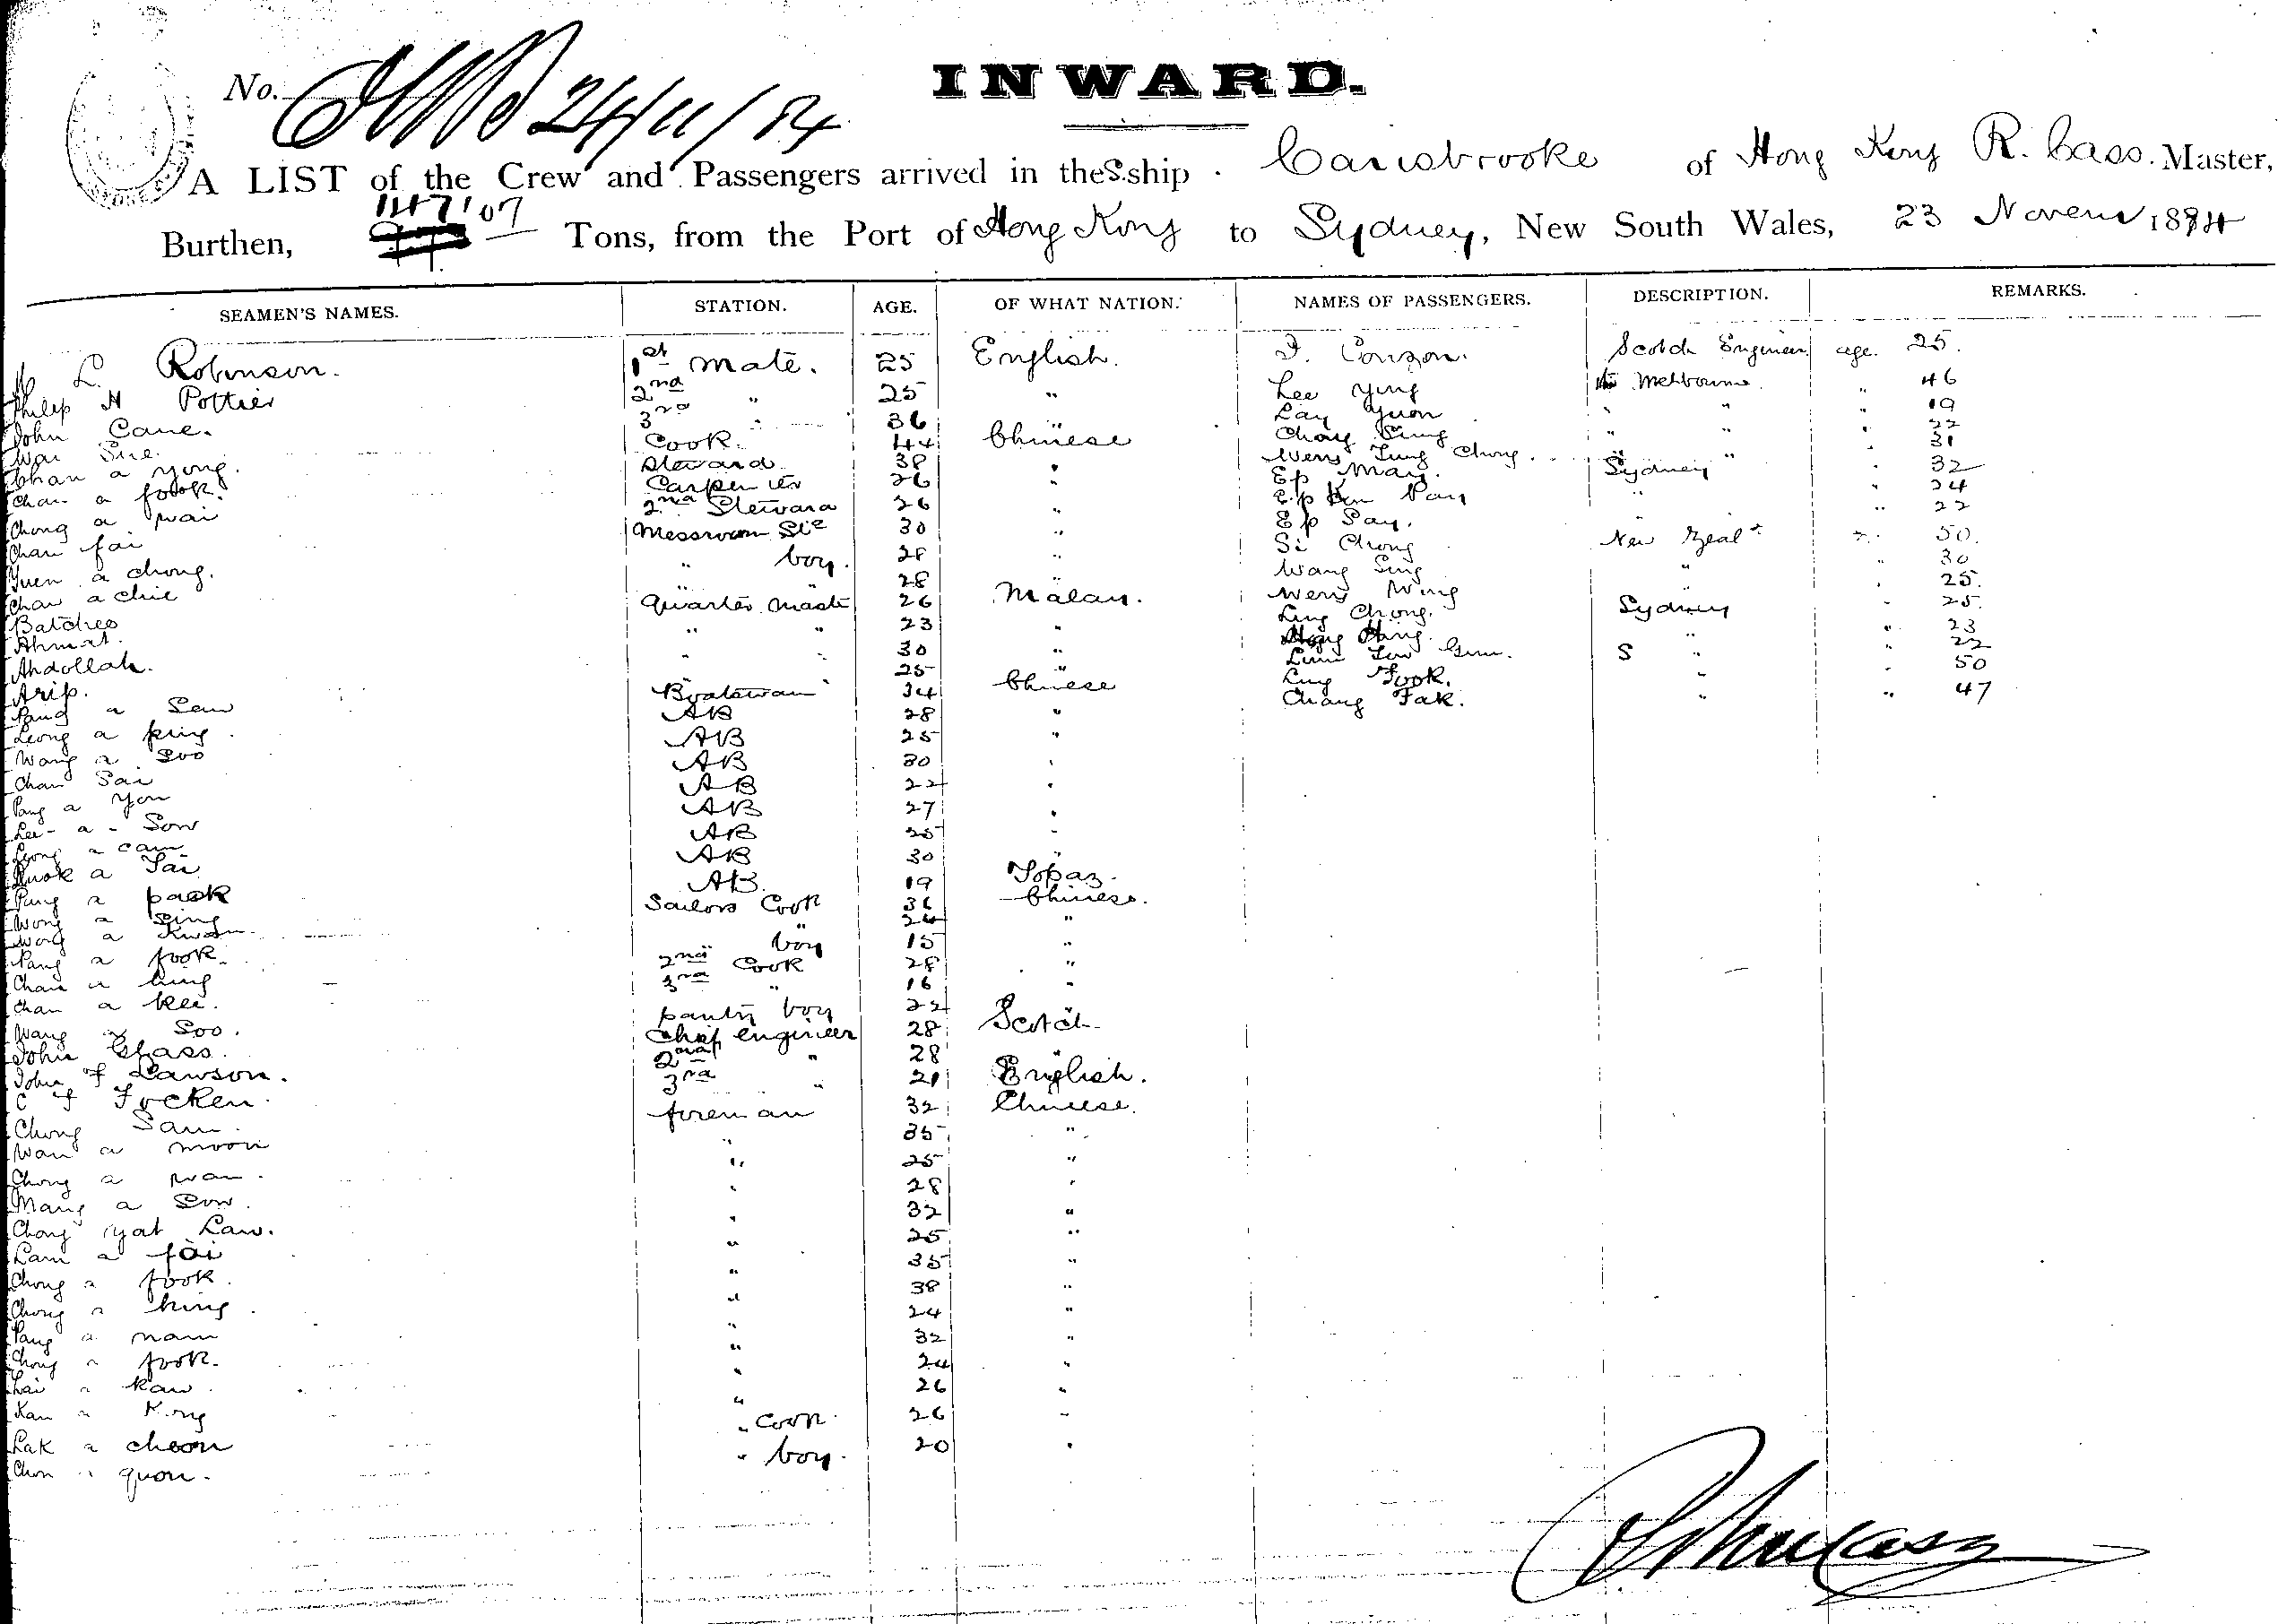 INWARD.
No. 24/11/84
A LIST of the Crew and Passengers arrived in the S.ship Carisbrooke of Hong Kong R. Cass. Master,
Burthen, 1147 07 Tons, from the Port of Hong Kong to Sydney, New South Wales, 23 Novem 1884
SEAMEN'S NAMES. STATION. AGE. OF WHAT NATION. NAMES OF PASSENGERS. DESCRIPTION. REMARKS.
L. Robinson. 1st Mate. 25 English. Scotch Engineer age. 25.
Philip H Pottier 2nd " 25 " Lee Ying Melbourne " 46
John Cane. 3rd " 36 " Lay Yuon " " " 19
Wai Sue. Cook. 44 Chinese Chong Sung " " " 22
Chan a yong. Steward 38 " Weng Tung Chong. " " 31
Chan a fook. Carpenter 26 " Ep May. Sydney " 32
Chong a wai 2nd Steward 26 " Ep Pan " " 24
Chan fai Messroom Std 30 " Ep Say. " 22
Yuen a chong. " boy. 28 " Si Chong New Zeald " 50.
Chan a chie " " 28 " Wang Sing " " 30
Batches Quarter Master 26 Malay. Weng Wing " 25.
Ahmat. " " 23 " Ling Chong. Sydney " 25.
Abdollah. " " 30 " Hing. " " 23
Arip. 25 " Lum Low Gum. S " " 22
Pang a Sew Boatswain 34 Chinese Ling Fook. 50
Leong a king. AB 28 " Chang Fak. " " 47
Wang a Soo AB 25 "
Chan Sai AB 30 "
Pang a You AB 22 "
Lee - a - Sow AB 27 "
Leong a cam AB 25 "
Kwok a Tai AB 30 "
Pang a pack AB. 19 Topaz.
Wong a sing Sailors Cook 36 Chinese.
Wong a Kwan 24 "
Pang a fook. " boy 15 "
Chan a hing 2nd Cook 28 "
Chan a kee. 3rd " 16 "
Wang a Soo. pantry boy 22 "
John Glass. Chief engineer 28 Scotch
John F Lawson. 2nd " 28 "
C F Focken. 3rd " 21 English.
Chong Sam foreman 32 Chinese.
Wan a moon " 35 "
Chong a wan. " 25 "
Mang a Sow. " 28 "
Chong yat Law. " 32 "
Lam a fai " 25 "
Chong a fook. " 35 "
Chong a hing. " 38 "
Pang a nam " 24 "
Chong a fook. " 32 "
Lai a Kaw. " 24 "
Kan a Kong " 26 "
Lak a cheon " Cook. 26 "
Chon a quon. " boy. 20 "